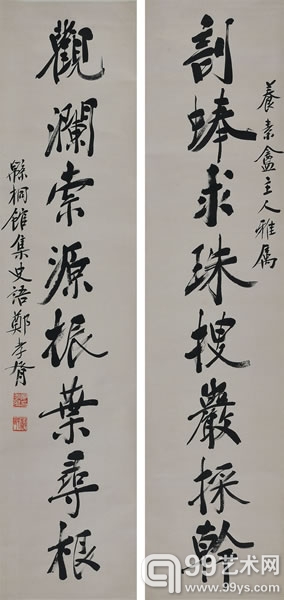 養素盦主人雅屬
剖蜯求珠搜巖採幹
觀瀾索源振葉尋根
緜桐館集史語鄭孝胥
99艺术网
www.99ys.com